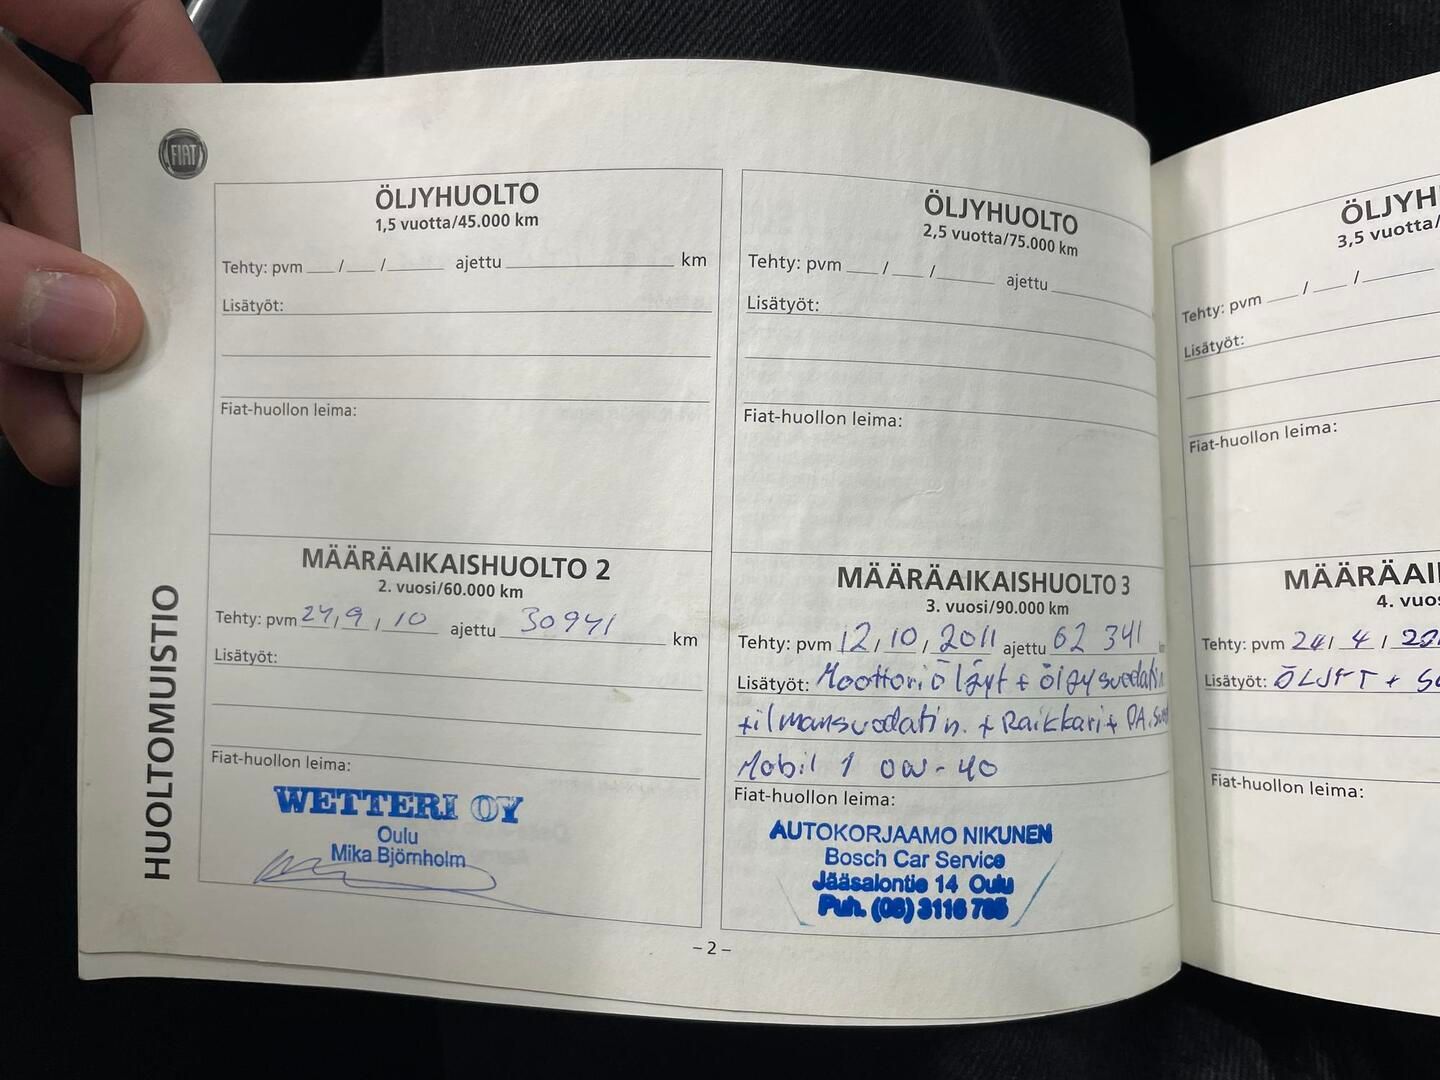 FIAT
HUOLTOMUISTIO
ÖLJYHUOLTO
1,5 vuotta/45.000 km
Tehty: pvm / / ajettu km
Lisätyöt:
Fiat-huollon leima:
MÄÄRÄAIKAISHUOLTO 2
2. vuosi/60.000 km
Tehty: pvm 27,9,10 ajettu 30941 km
Lisätyöt:
Fiat-huollon leima:
WETTERI OY
Oulu
Mika Björnholm
ÖLJYHUOLTO
2,5 vuotta/75.000 km
Tehty: pvm / / ajettu
Lisätyöt:
Fiat-huollon leima:
MÄÄRÄAIKAISHUOLTO 3
3. vuosi/90.000 km
Tehty: pvm 12,10,2011 ajettu 62 341
Lisätyöt: Moottoriöljyt + öljysuodatin
+ilmansuodatin. + Raikkari+ PA.
Mobil 1 0W-40
Fiat-huollon leima:
AUTOKORJAAMO NIKUNEN
Bosch Car Service
Jääsalontie 14 Oulu
Puh. (08) 3116 785
– 2 –
ÖLJYH
3,5 vuotta/
Tehty: pvm / /
Lisätyöt:
Fiat-huollon leima:
MÄÄRÄAI
4. vuos
Tehty: pvm 24/ 4 /
Lisätyöt: ÖLJYT +
Fiat-huollon leima: